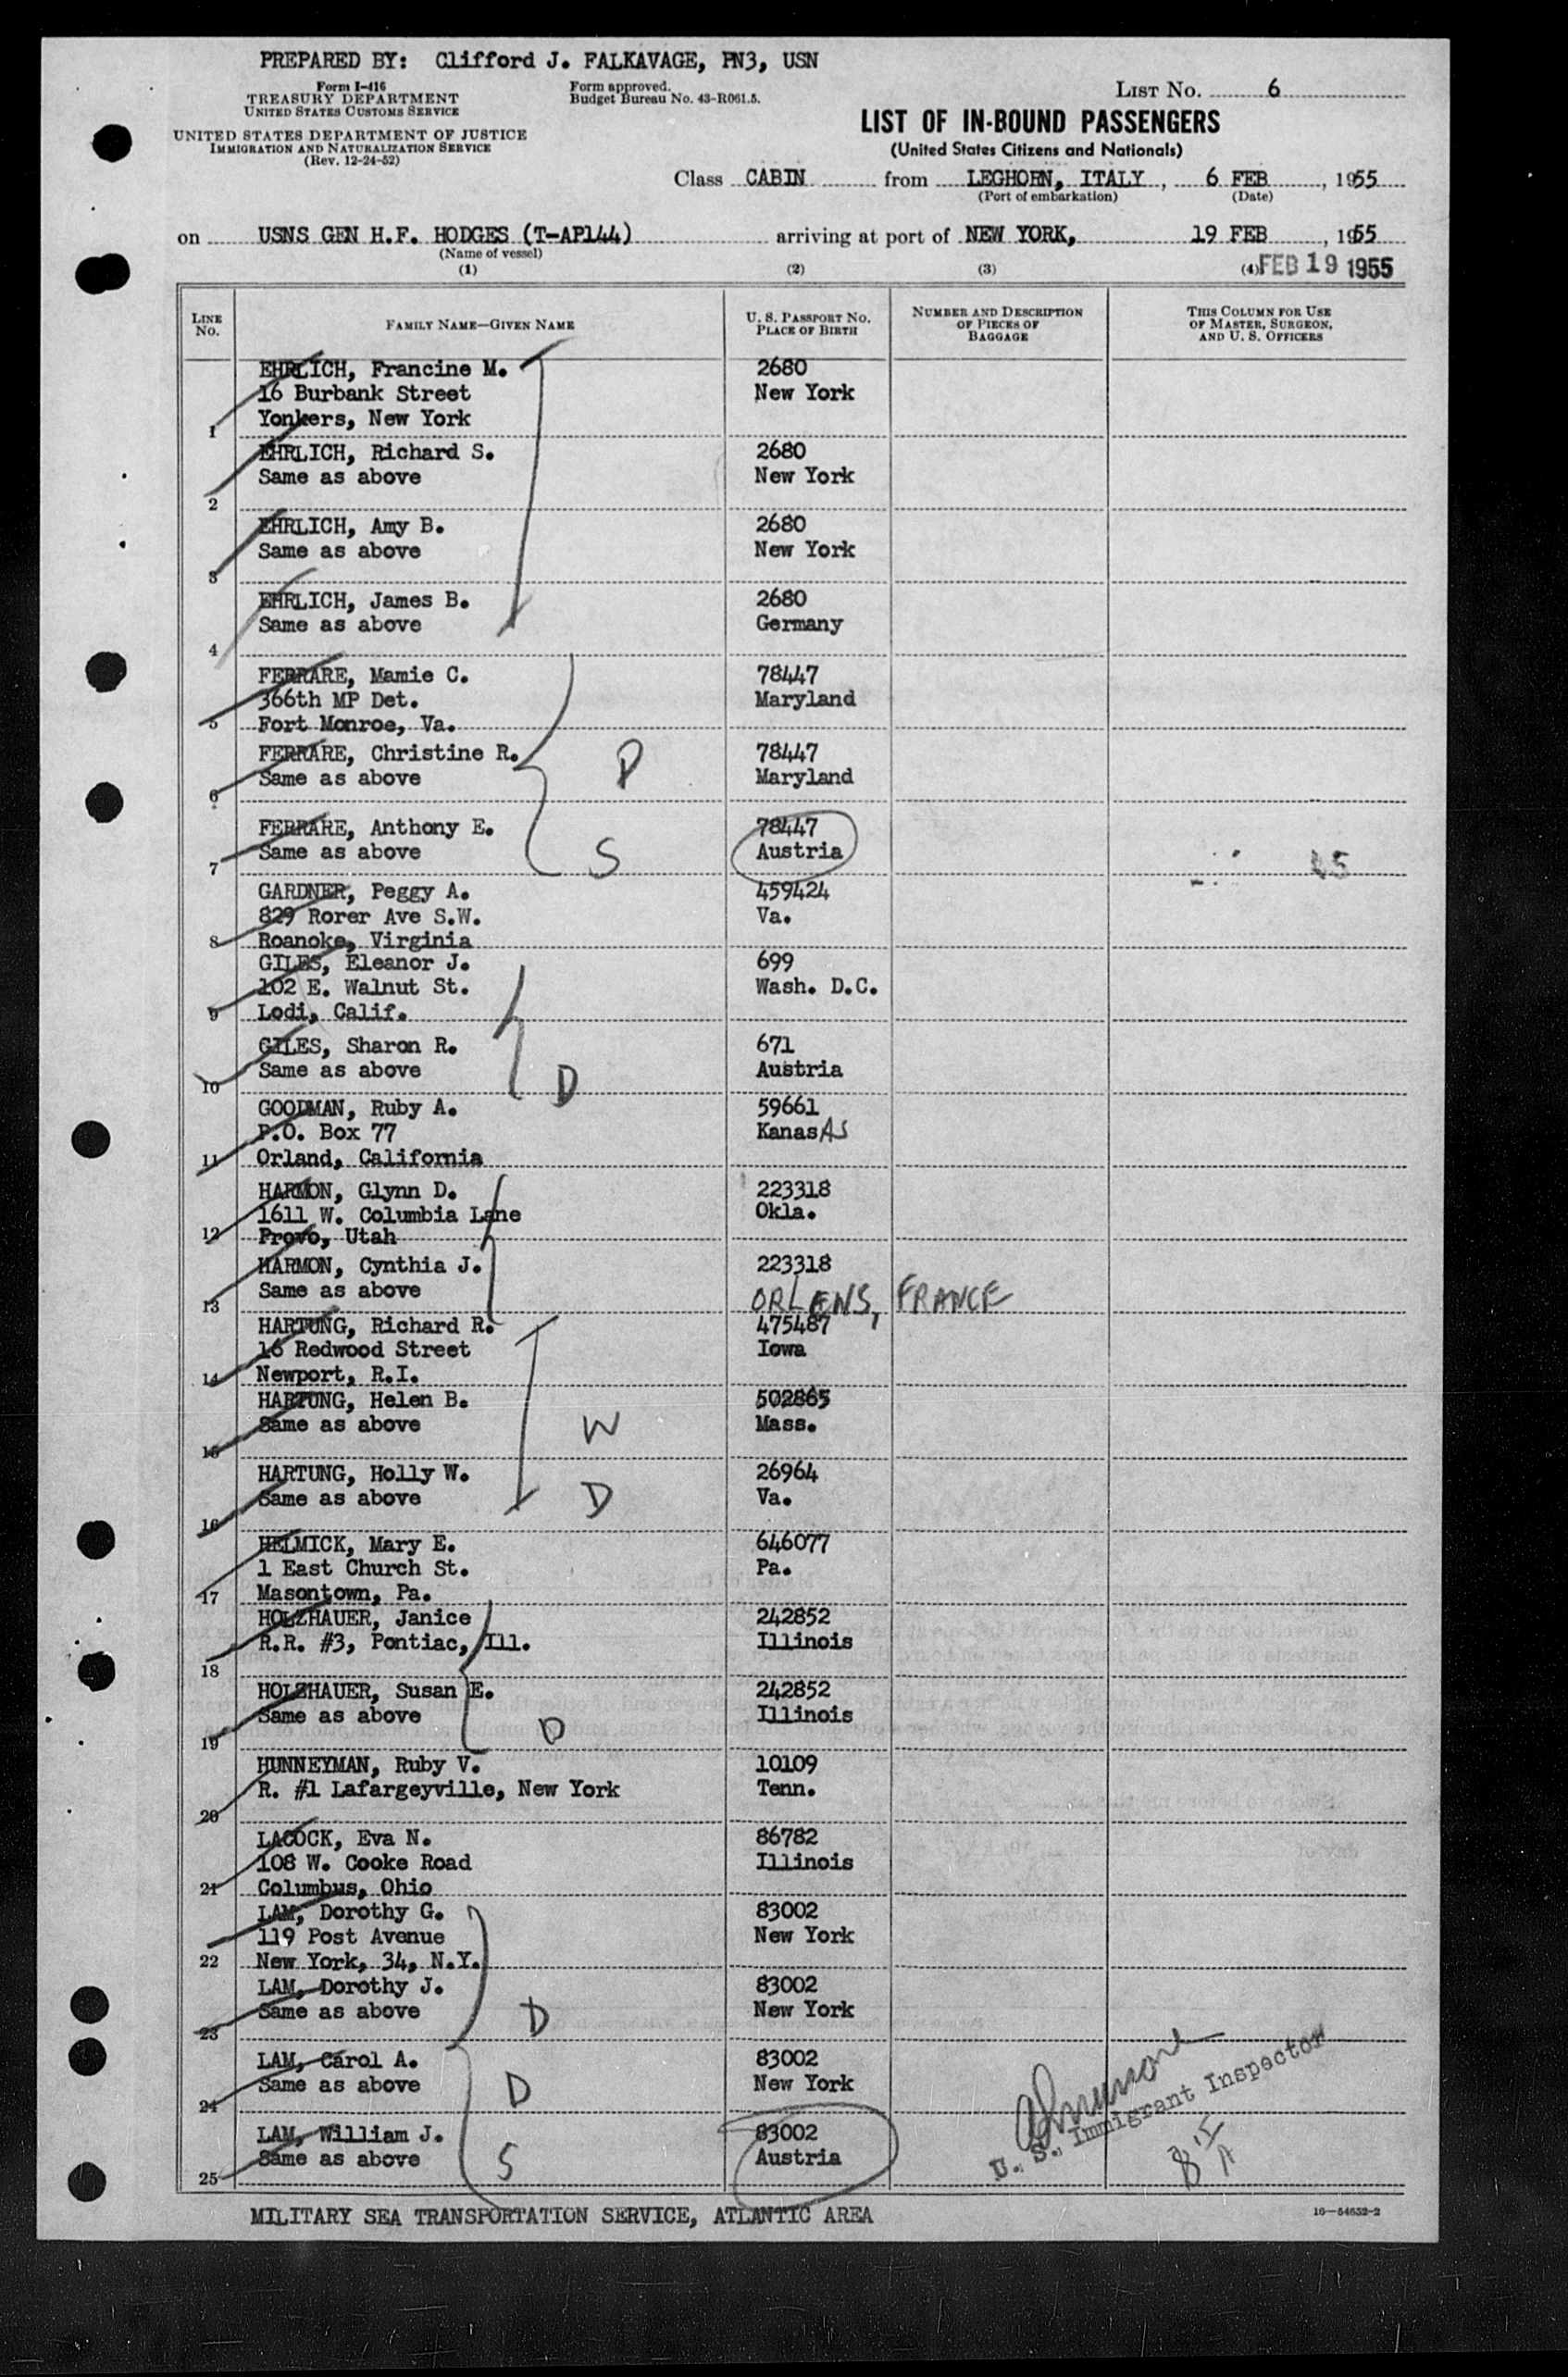 PREPARED BY: Clifford J. FALKAVAGE, PN3, USN
Form I-416
TREASURY DEPARTMENT
UNITED STATES CUSTOMS SERVICE
UNITED STATES DEPARTMENT OF JUSTICE
IMMIGRATION AND NATURALIZATION SERVICE
(Rev. 12-24-52)
Form approved.
Budget Bureau No. 43-R061.5.
LIST NO. 6
LIST OF IN-BOUND PASSENGERS
(United States Citizens and Nationals)
Class CABIN from LEGHORN, ITALY, 6 FEB, 1955
(Port of embarkation) (Date)
on USNS GEN H.F. HODGES (T-AP144) arriving at port of NEW YORK, 19 FEB, 1955
(Name of vessel)
(1) (2) (3) (4) FEB 19 1955
LINE NO. FAMILY NAME—GIVEN NAME U. S. PASSPORT NO. PLACE OF BIRTH NUMBER AND DESCRIPTION OF PIECES OF BAGGAGE THIS COLUMN FOR USE OF MASTER, SURGEON, AND U. S. OFFICERS
EHRLICH, Francine M. 2680
16 Burbank Street New York
1 Yonkers, New York
EHRLICH, Richard S. 2680
Same as above New York
2
EHRLICH, Amy B. 2680
Same as above New York
3
EHRLICH, James B. 2680
Same as above Germany
4
FERRARE, Mamie C. 78447
366th MP Det. Maryland
5 Fort Monroe, Va.
FERRARE, Christine R. 78447
6 Same as above D Maryland
FERRARE, Anthony E. 78447
7 Same as above S Austria
GARDNER, Peggy A. 459424
829 Rorer Ave S.W. Va.
8 Roanoke, Virginia
GILES, Eleanor J. 699
102 E. Walnut St. Wash. D.C.
9 Lodi, Calif.
GILES, Sharon R. 671
Same as above Austria
10 D
GOODMAN, Ruby A. 59661
P.O. Box 77 KanasAS
11 Orland, California
HARMON, Glynn D. 223318
1611 W. Columbia Lane Okla.
12 Provo, Utah
HARMON, Cynthia J. 223318
Same as above ORLENS, FRANCE
13
HARTUNG, Richard R. 475487
16 Redwood Street Iowa
14 Newport, R.I.
HARTUNG, Helen B. 502865
Same as above W Mass.
15
HARTUNG, Holly W. 26964
Same as above D Va.
16
HELMICK, Mary E. 646077
1 East Church St. Pa.
17 Masontown, Pa.
HOLZHAUER, Janice 242852
R.R. #3, Pontiac, Ill. Illinois
18
HOLZHAUER, Susan E. 242852
Same as above D Illinois
19
HUNNEYMAN, Ruby V. 10109
R. #1 Lafargeyville, New York Tenn.
20
LACOCK, Eva N. 86782
108 W. Cooke Road Illinois
21 Columbus, Ohio
LAM, Dorothy G. 83002
119 Post Avenue New York
22 New York, 34, N.Y.
LAM, Dorothy J. 83002
Same as above D New York
23
LAM, Carol A. 83002
Same as above D New York
24
LAM, William J. 83002
Same as above S Austria
25
U. S. Immigrant Inspector
MILITARY SEA TRANSPORTATION SERVICE, ATLANTIC AREA
16—54652-2